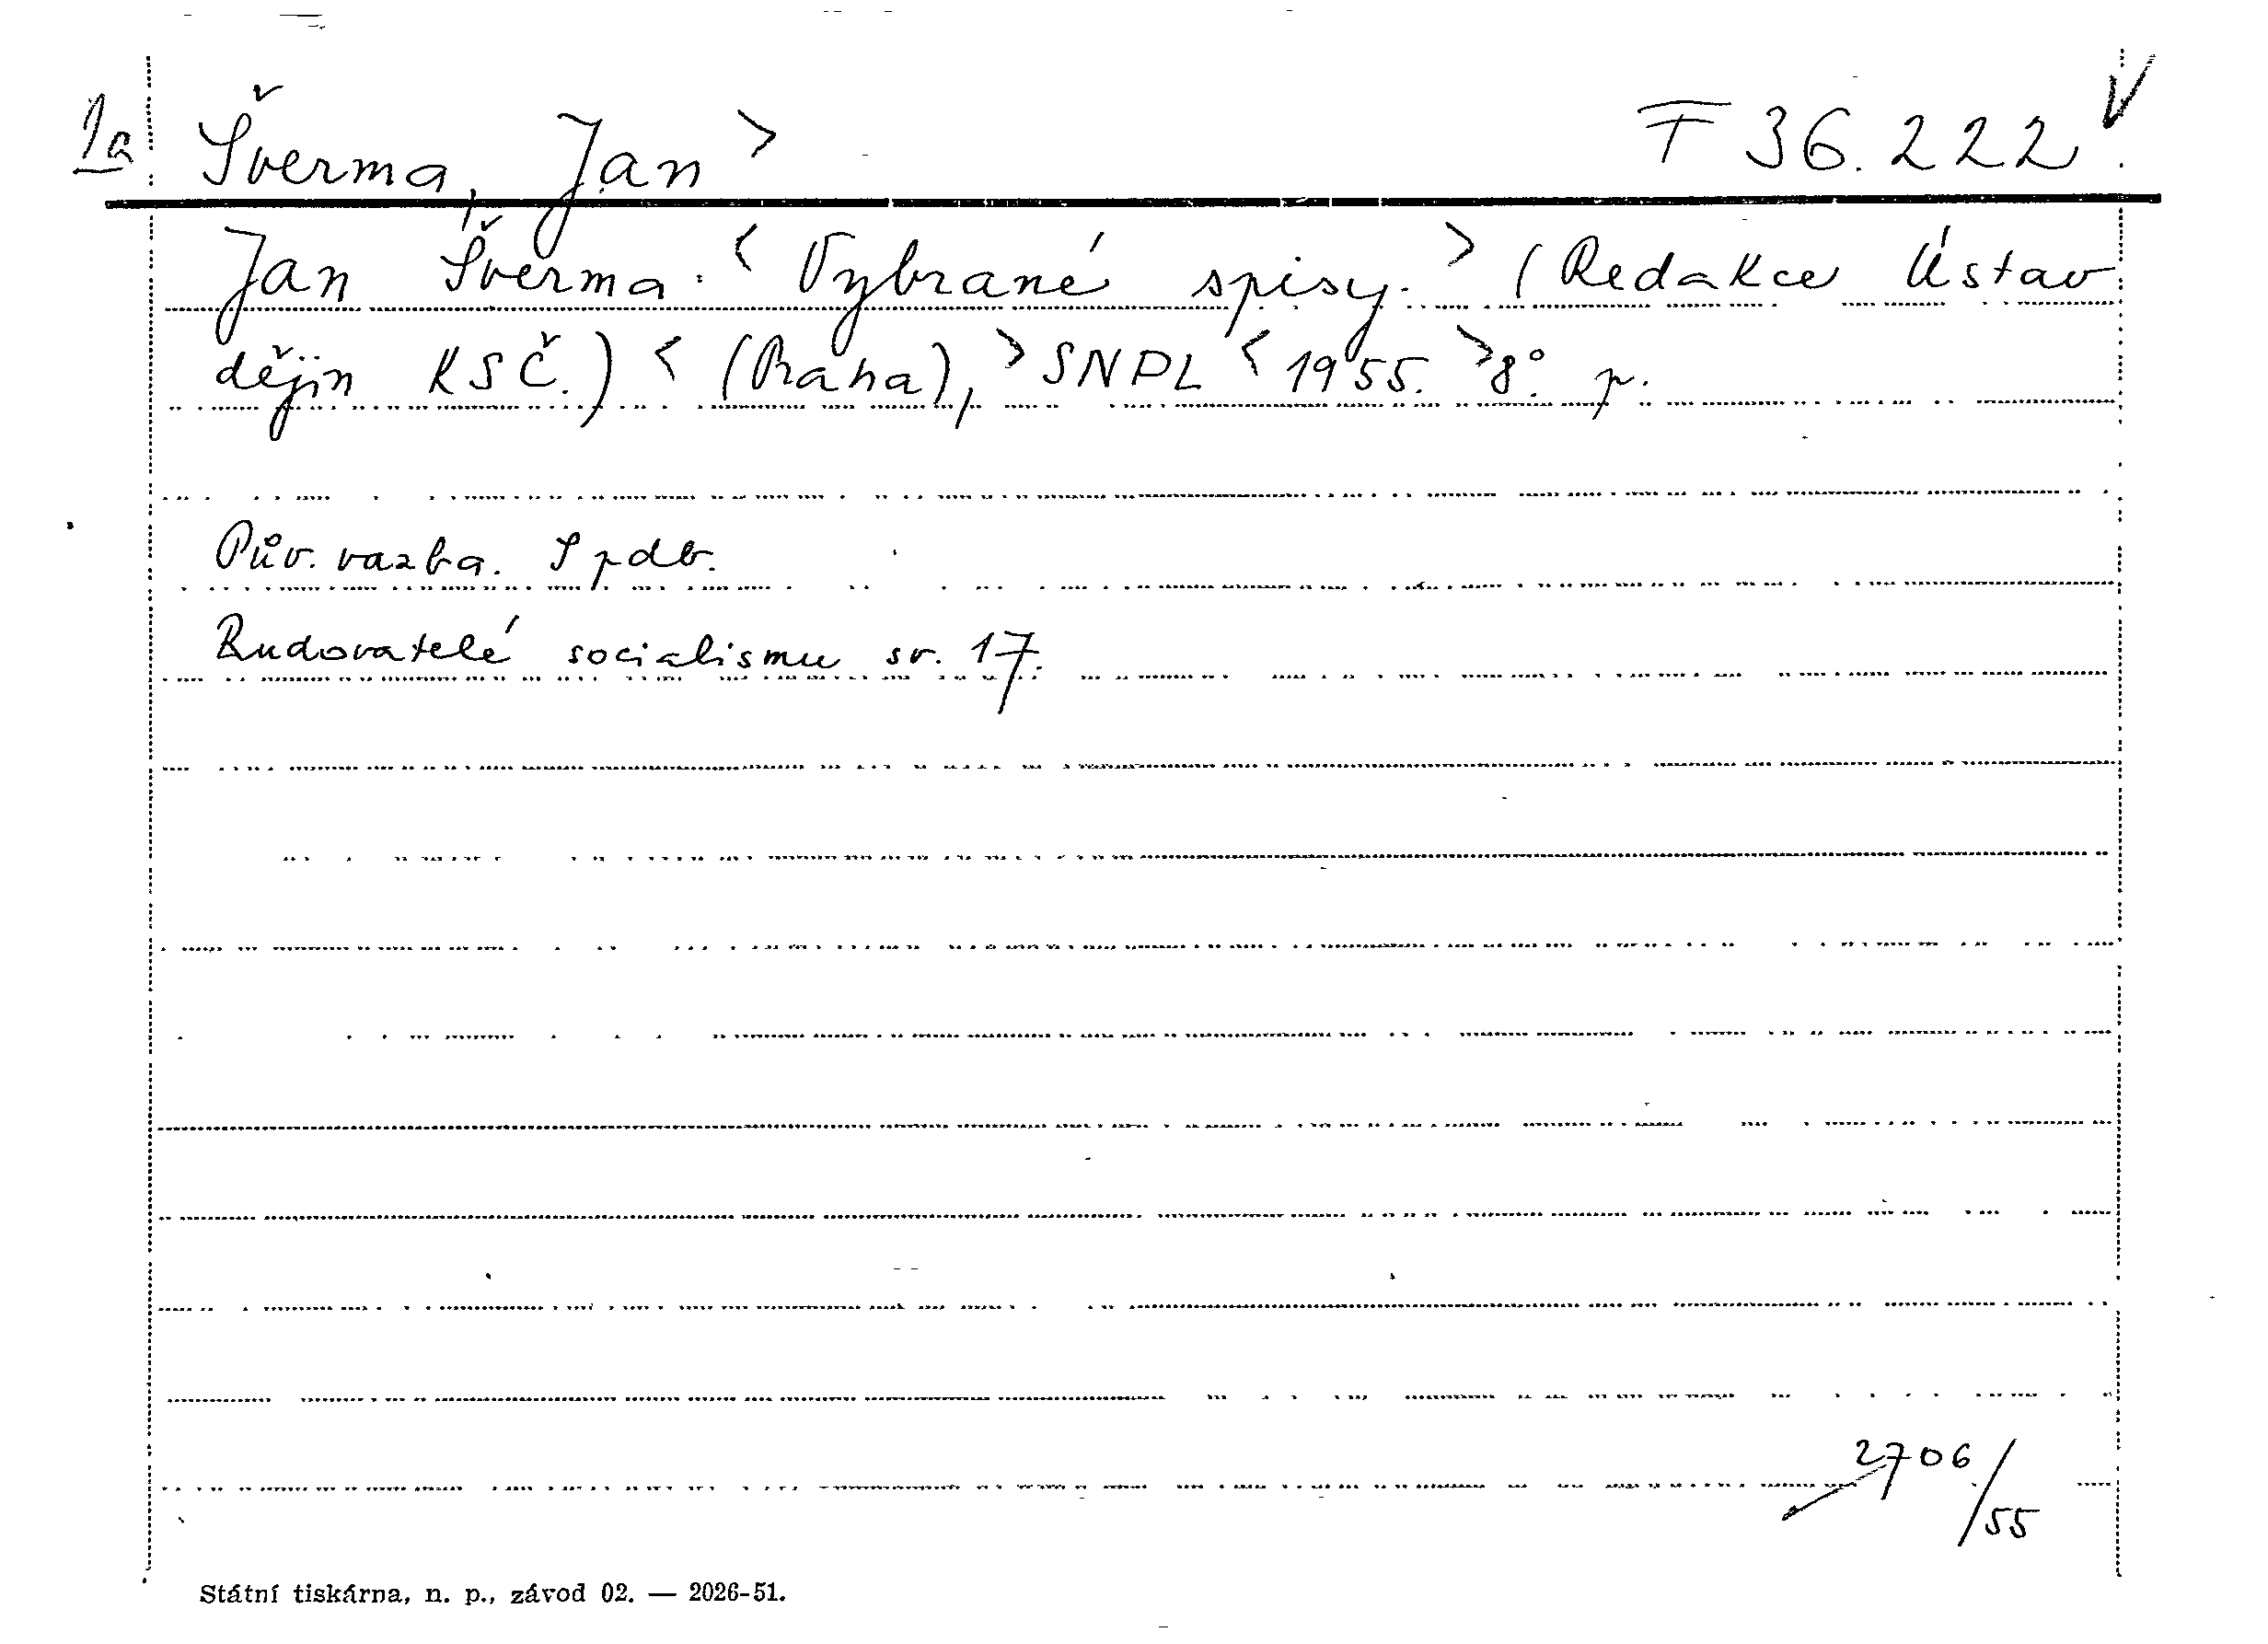 1a Šverma, Jan > F 36.222 V
Jan Šverma. < Vybrané spisy. > (Redakce Ústav
dějin KSČ.) < (Praha), > SNPL < 1955. > 8° p.
Pův. vazba. S pdb.
Budovatelé socialismu sv. 17.
2706/55
Státní tiskárna, n. p., závod 02. — 2026-51.